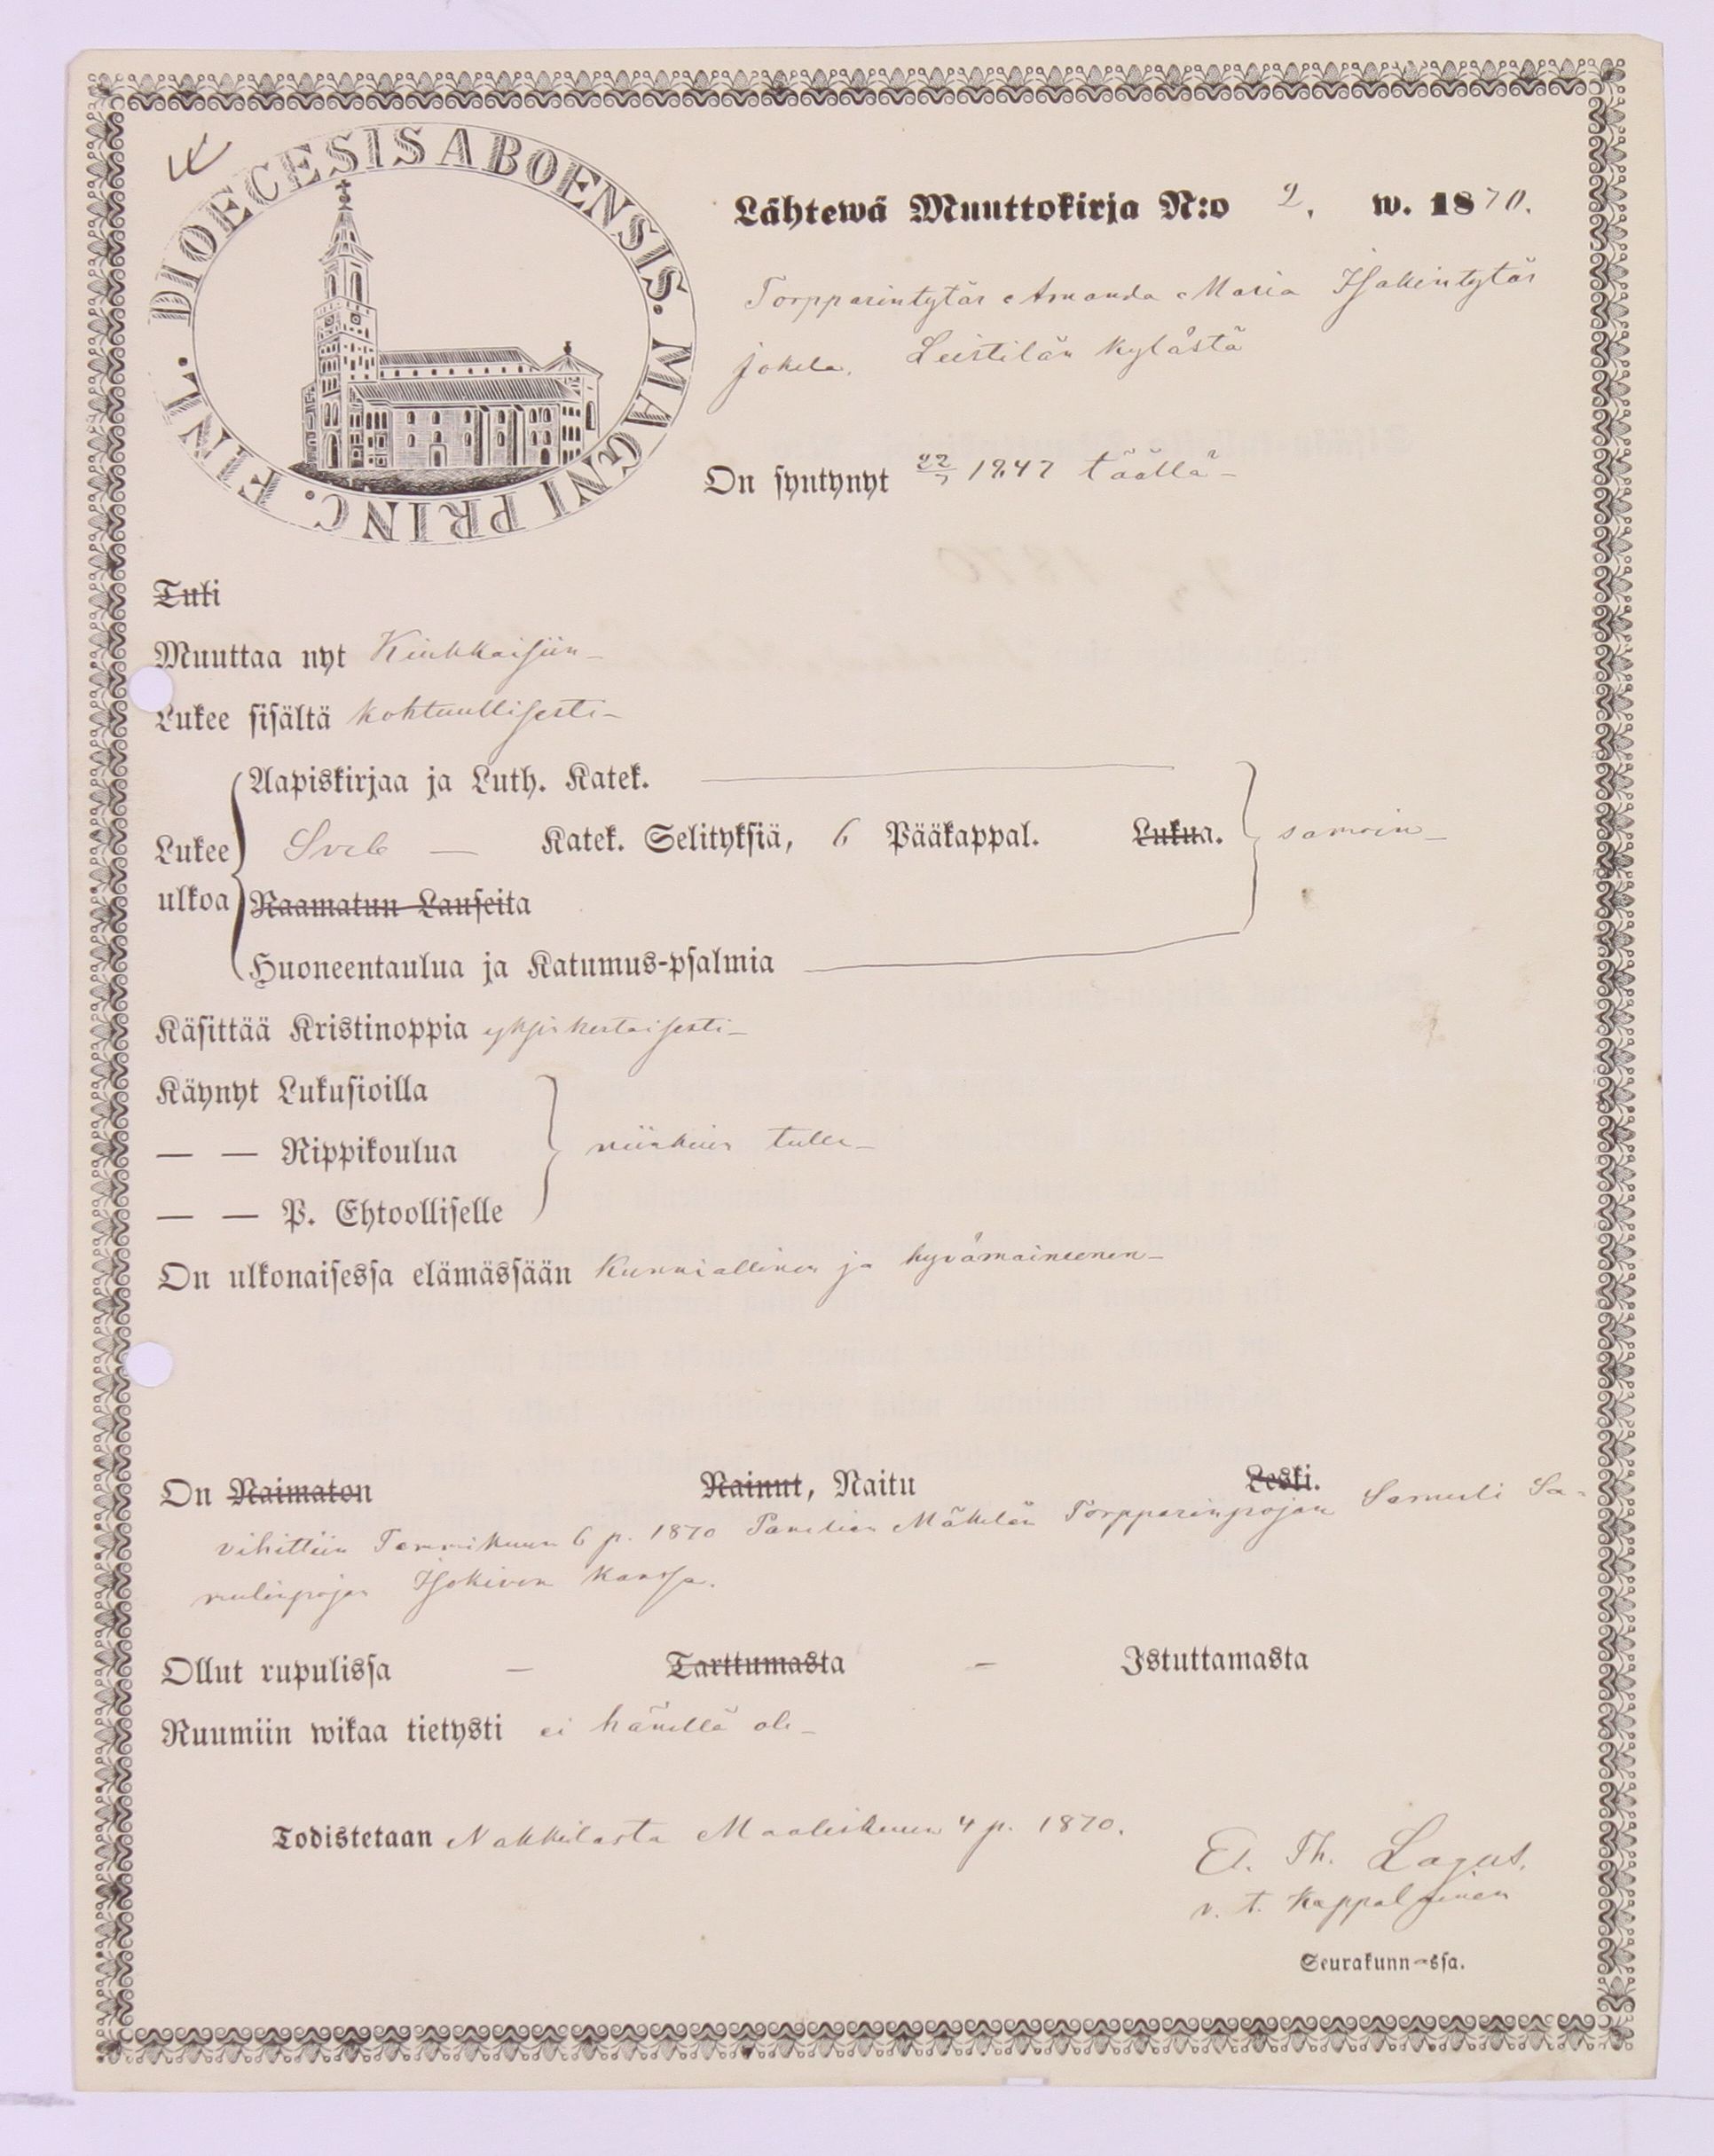 DIOECESIS ABOENSIS. MAGNI PRINC. FINL.
Lähtewä Muuttokirja N:o 2. w. 1870.
Torpparintytär Amanda Maria Isakintytär
Jokela. Leistilän kylästä
On syntynyt 22/ 1847 täällä-
Tuli
Muuttaa nyt Kiukkaisiin-
Lukee sisältä kohtuullisesti-
Aapiskirjaa ja Luth. Katek.
Lukee Sveb — Katek. Selityksiä, 6 Pääkappal. Lukua. samoin-
ulkoa Raamatun Lauseita
Huoneentaulua ja Katumus-psalmia
Käsittää Kristinoppia yksinkertaisesti-
Käynyt Lukusioilla
— — Rippikoulua niinkuin tulee-
— — P. Ehtoolliselle
On ulkonaisessa elämässään kunniallinen ja hyvämaineenen-
On Naimaton Nainut, Naitu Leski.
vihittiin Tammikuun 6 p. 1870 Panelian Mäkelän Torpparinpojan Samuli Sa-
mulinpojan Isokiven kanssa.
Ollut rupulissa – Tarttumasta – Istuttamasta
Ruumiin wikaa tietysti ei hänellä ole-
Todistetaan Nakkilasta Maaliskuun 4 p. 1870.
Th. Lagus.
v. t. Kappalainen
Seurakunn-ssa.